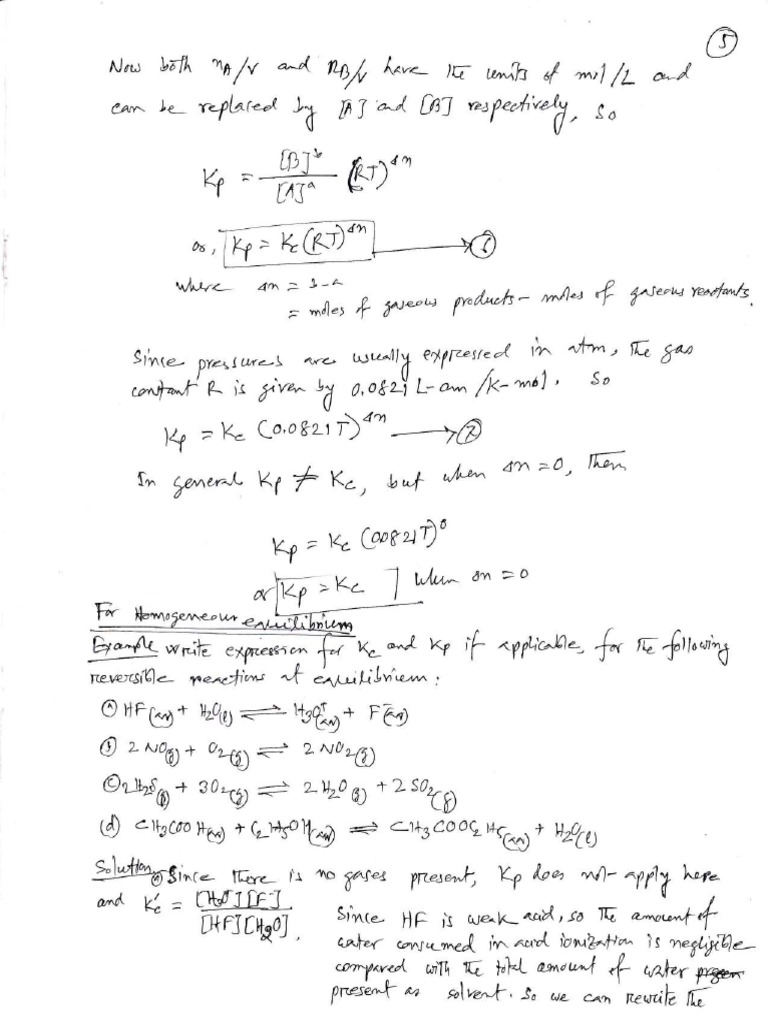 5
Now both nA/V and nB/V have the units of mol/L and
can be replaced by [A] and [B] respectively, so
Kp = [B]ᵇ/[A]ᵃ (RT)^Δn
or, Kp = Kc(RT)^Δn → 6
where Δn = b-a
= moles of gaseous products - moles of gaseous reactants.
Since pressures are usually expressed in atm, the gas
constant R is given by 0.0821 L-am/K-mol. So
Kp = Kc (0.0821T)^Δn → 7
In general Kp ≠ Kc, but when Δn=0, then
Kp = Kc (00821T)⁰
or Kp = Kc when Δn = 0
For Homogeneous equilibrium
Example write expression for Kc and Kp if applicable, for the following
reversible reactions at equilibrium:
(a) HF(aq) + H2O(l) ⇌ H3O⁺(aq) + F⁻(aq)
(b) 2 NO(g) + O2(g) ⇌ 2 NO2(g)
(c) 2H2S(g) + 3O2(g) ⇌ 2H2O(g) + 2SO2(g)
(d) CH3COOH(aq) + C2H5OH(aq) ⇌ CH3COOC2H5(aq) + H2O(l)
Solution (a) Since there is no gases present, Kp does not apply here
and K'c = [H3O⁺][F⁻]/[HF][H2O], Since HF is weak acid, so the amount of
water consumed in acid ionization is negligible
compared with the total amount of water
present as solvent. So we can rewrite the